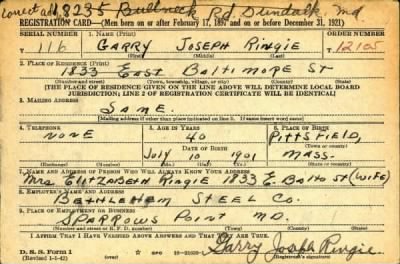 correct ad 8235 Bullneck Rd Dundalk, Md
REGISTRATION CARD—(Men born on or after February 17, 1897 and on or before December 31, 1921)
SERIAL NUMBER 1. NAME (Print) ORDER NUMBER
T 116 GARRY JOSEPH RINGIE T 12105
(First) (Middle) (Last)
2. PLACE OF RESIDENCE (Print)
1833 EAST BALTIMORE ST
(Number and street) (Town, township, village, or city) (County) (State)
[THE PLACE OF RESIDENCE GIVEN ON THE LINE ABOVE WILL DETERMINE LOCAL BOARD
JURISDICTION; LINE 2 OF REGISTRATION CERTIFICATE WILL BE IDENTICAL]
3. MAILING ADDRESS
SAME.
[Mailing address if other than place indicated on line 2. If same insert word same]
4. TELEPHONE 5. AGE IN YEARS 6. PLACE OF BIRTH
NONE 40 PITTSFIELD,
DATE OF BIRTH (Town or county)
JULY 10 1901 MASS.
(Exchange) (Number) (Mo.) (Day) (Yr.) (State or country)
7. NAME AND ADDRESS OF PERSON WHO WILL ALWAYS KNOW YOUR ADDRESS
MRS ELIZABETH RINGIE 1833 E. BALTO ST (WIFE)
8. EMPLOYER'S NAME AND ADDRESS
BETHLEHEM STEEL CO.
9. PLACE OF EMPLOYMENT OR BUSINESS
SPARROWS POINT MD.
(Number and street or R. F. D. number) (Town) (County) (State)
I AFFIRM THAT I HAVE VERIFIED ABOVE ANSWERS AND THAT THEY ARE TRUE.
D. S. S. Form 1 Garry Joseph Ringie.
(Revised 1-1-42) (over) GPO (Registrant's signature)